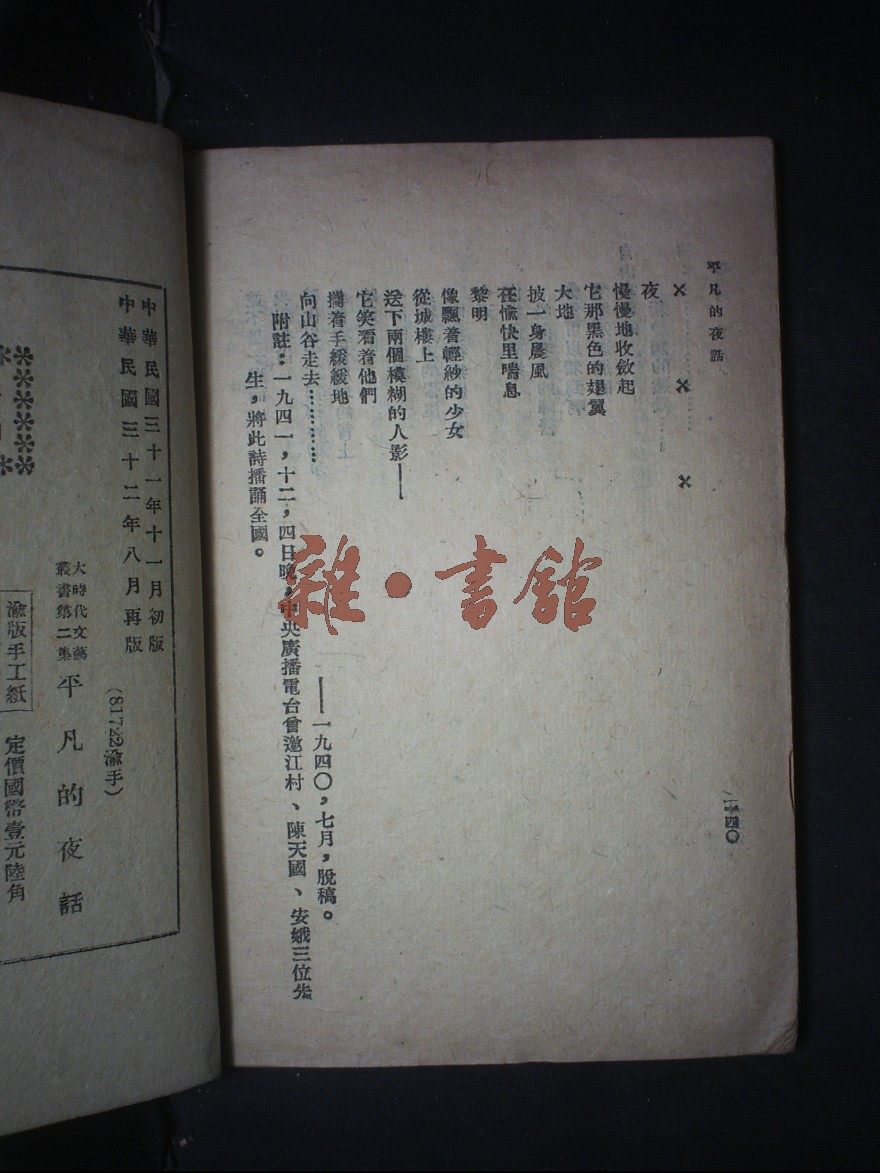 平凡的夜話
×　×　×
夜
慢慢地收斂起
它那黑色的翅翼
大地
披一身晨風
在愉快里喘息
黎明
像飄着輕紗的少女
從城樓上
送下兩個模糊的人影——
它笑看着他們
攜着手緩緩地
向山谷走去…………
——一九四〇，七月，脫稿。
附註：一九四一，十二，四日晚，中央廣播電台曾邀江村、陳天國、安娥三位先
生，將此詩播誦全國。
一四〇
雜·書館
中華民國三十一年十一月初版
中華民國三十二年八月再版
(817·22渝手)
大時代文藝
叢書第二集
平凡的夜話
渝版手工紙
定價國幣壹元陸角